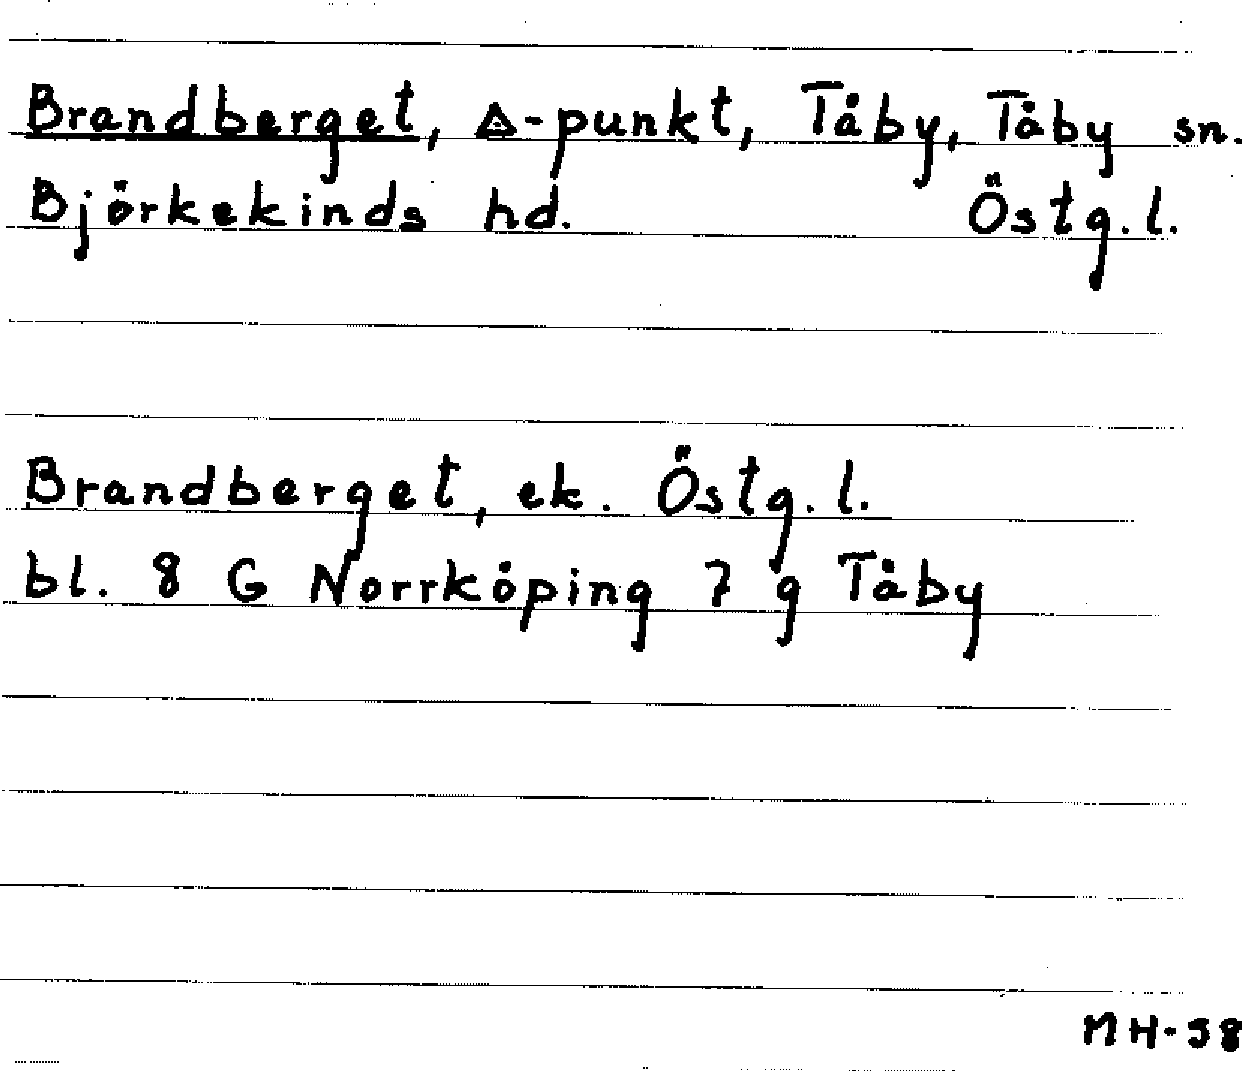 Brandberget, △-punkt, Tåby, Tåby sn.
Björkekinds hd. Östg.l.
Brandberget, ek. Östg.l.
bl. 8 G Norrköping 7 g Tåby
MH-58